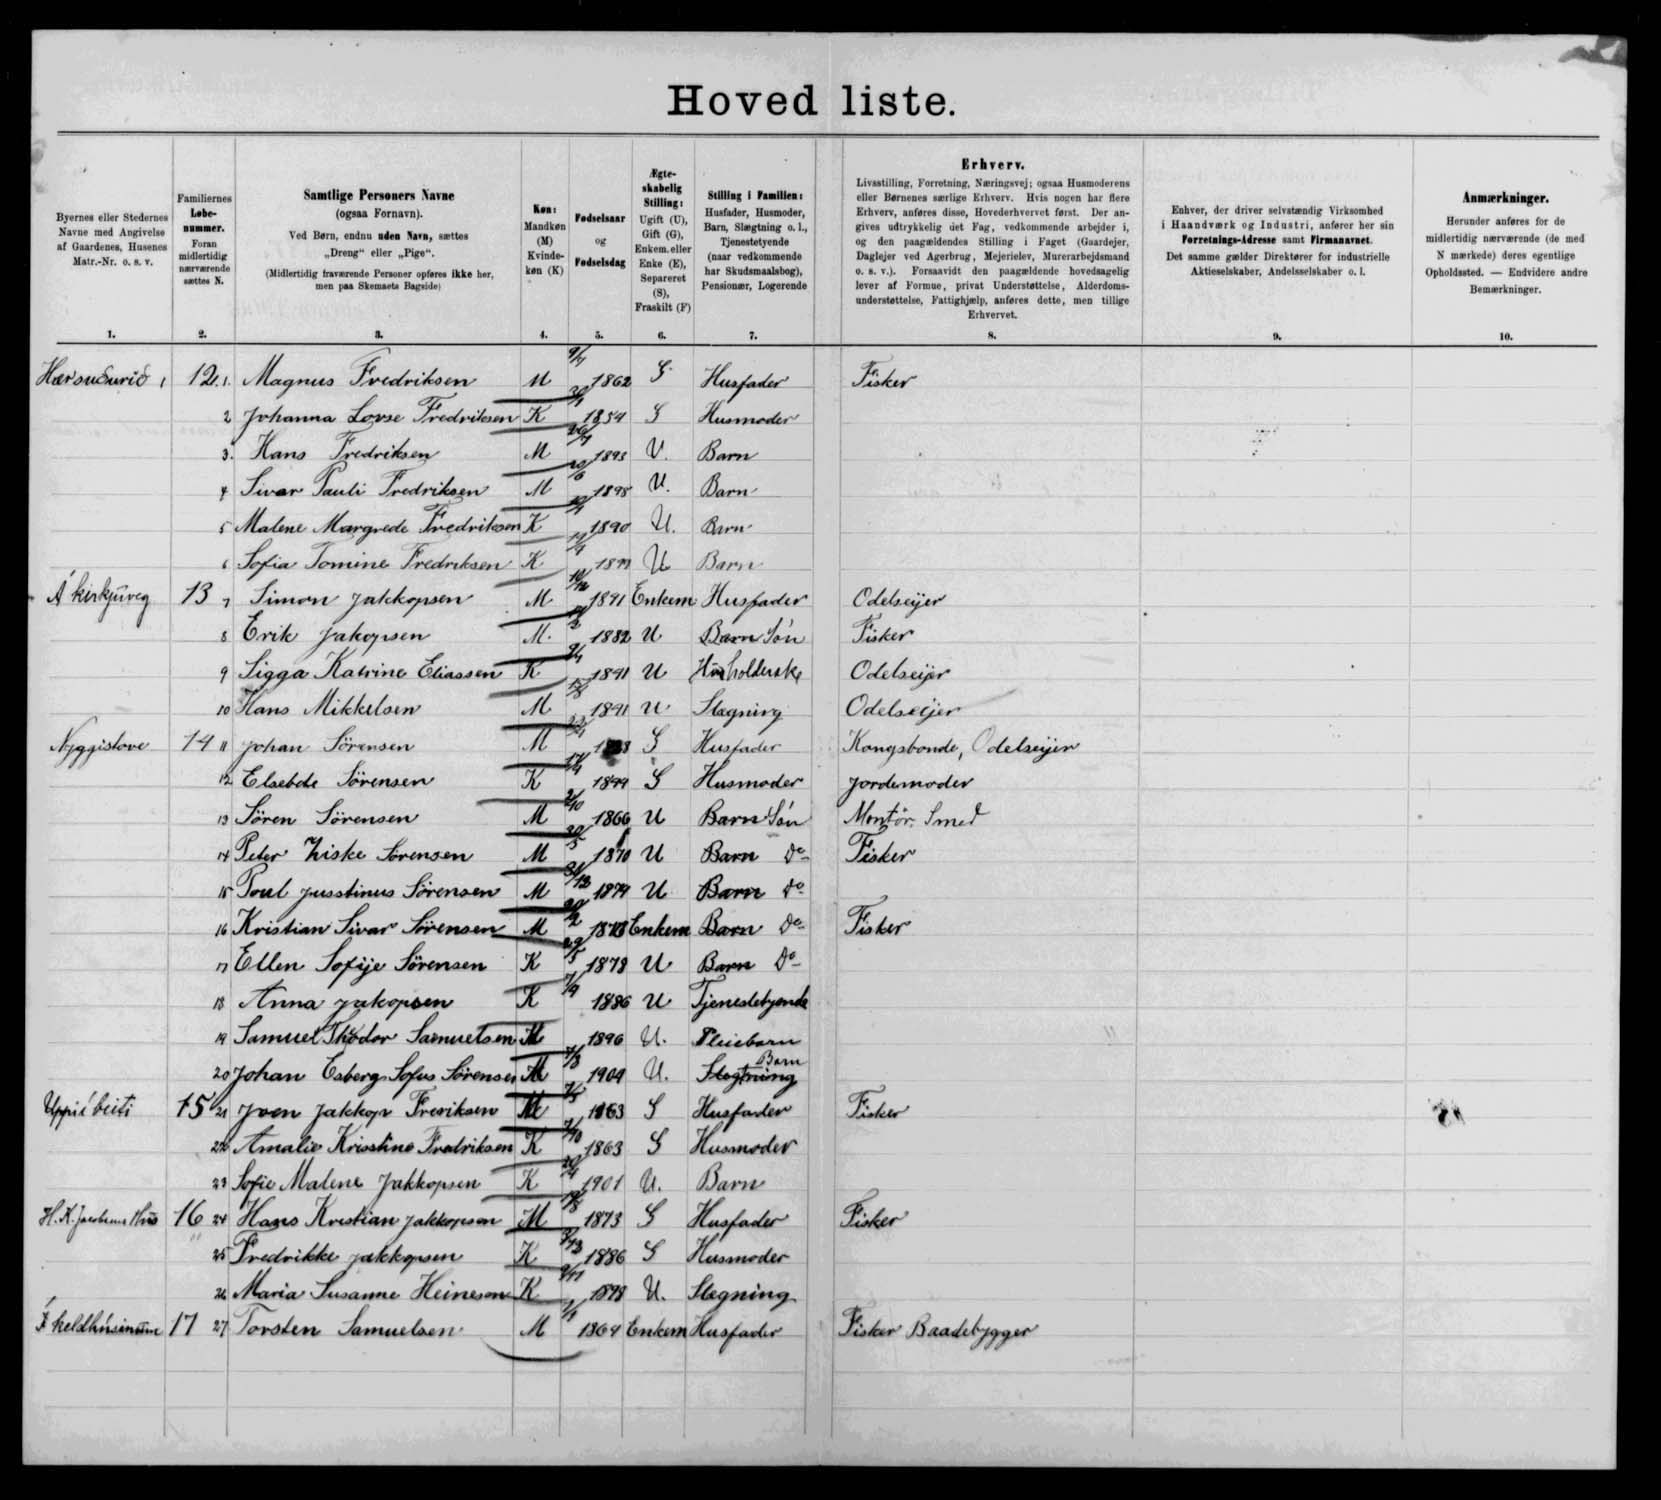 Hoved liste.
Byernes eller Stedernes Navne med Angivelse af Gaardenes, Husenes Matr.-Nr. o. s. v.
Familiernes Løbenummer. Foran midlertidig nærværende sættes N.
Samtlige Personers Navne (ogsaa Fornavn). Ved Børn, endnu uden Navn, sættes „Dreng“ eller „Pige“. (Midlertidig fraværende Personer opføres ikke her, men paa Skemaets Bagside)
Køn: Mandkøn (M) Kvindekøn (K)
Fødselsaar og Fødselsdag
Ægteskabelig Stilling: Ugift (U), Gift (G), Enkem. eller Enke (E), Separeret (S), Fraskilt (F)
Stilling i Familien: Husfader, Husmoder, Barn, Slægtning o. l., Tjenestetyende (naar vedkommende har Skudsmaalsbog), Pensionær, Logerende
Erhverv.
Livsstilling, Forretning, Næringsvej; ogsaa Husmoderens eller Børnenes særlige Erhverv. Hvis nogen har flere Erhverv, anføres disse, Hovederhvervet først. Der angives udtrykkelig det Fag, vedkommende arbejder i, og den paagældendes Stilling i Faget (Gaardejer, Daglejer ved Agerbrug, Mejerielev, Murerarbejdsmand o. s. v.). Forsaavidt den paagældende hovedsagelig lever af Formue, privat Understøttelse, Alderdomsunderstøttelse, Fattighjælp, anføres dette, men tillige Erhvervet.
Enhver, der driver selvstændig Virksomhed i Haandværk og Industri, anfører her sin Forretnings-Adresse samt Firmanavnet. Det samme gælder Direktører for industrielle Aktieselskaber, Andelsselskaber o. l.
Anmærkninger.
Herunder anføres for de midlertidig nærværende (de med N mærkede) deres egentlige Opholdssted. — Endvidere andre Bemærkninger.
1. 2. 3. 4. 5. 6. 7. 8. 9. 10.
12 1. Magnus Fredriksen M 1862 G Husfader Fisker
2 Johanna Lovse Fredriksen K 1854 G Husmoder
3. Hans Fredriksen M 1893 U. Barn
4 Sivar Pauli Fredriksen M 1898 U. Barn
5 Malene Margrede Fredriksen K 1890 U. Barn
6 Sofia Tomine Fredriksen K U Barn
Á kirkjuveg 13 7 Simon Jakkopsen M Enkem Husfader Odelseijer
8 Erik Jakopsen M. 1882 U Barn Søn Fisker
9 Sigga Katrine Eliassen K U Husholderske Odelseijer
10 Hans Mikkelsen M U Slægning Odelseijer
Nyggistove 14 11 Johan Sörensen M G Husfader Kongsbonde, Odelseijer
12 Elsebde Sörensen K G Husmoder Jordemoder
13 Sören Sörensen M 1866 U Barn Søn Montör. Smed
14 Peter Ziske Sörensen M 1870 U Barn Do Fisker
15 Poul Jusstinus Sörensen M 1874 U Barn Do
16 Kristian Sivar Sörensen M Enkem Barn Do Fisker
17 Ellen Sofije Sörensen K 1878 U Barn Do
18 Anna Jakopsen K 1886 U Tjenestetyende
19 Samuel Thodor Samuelsen M 1896 U. Pleiebarn
20 Johan Esberg Sofus Sörensen M 1904 U. Slegtning Barn
Uppi í beiti 15 21 Joen Jakkop Freriksen M 1863 G Husfader Fisker
22 Amalie Krisstine Fredriksen K 1863 G Husmoder
23 Sofie Malene Jakkopsen K 1901 U. Barn
H. K. Jacobsens Hus 16 24 Hans Kristian Jakkopsen M 1873 G Husfader Fisker
25 Fredrikke Jakkopsen K 1886 G Husmoder
26 Maria Susanne Heinesen K 1898 U. Slegning
Í keldhúsinum 17 27 Torsten Samuelsen M 1864 Enkem Husfader Fisker Baadebygger